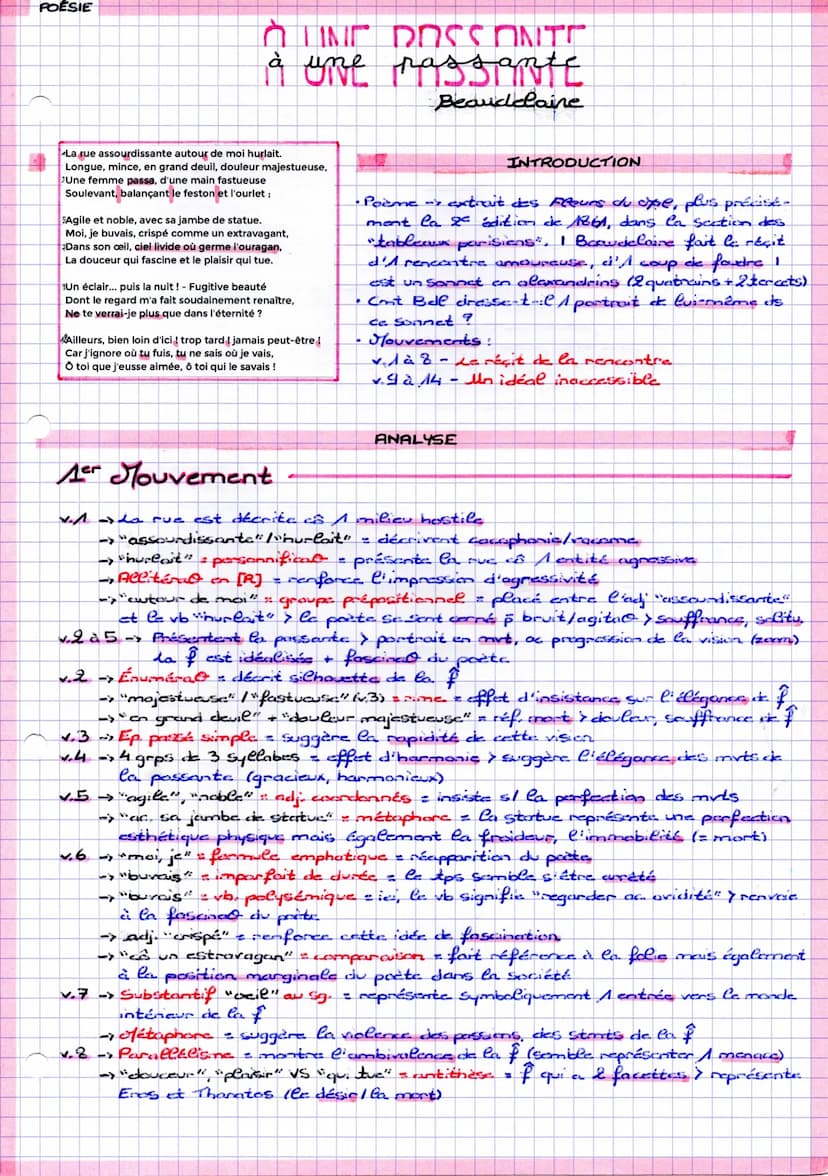 POÉSIE
À UNE PASSANTE
à une passante
Beaudelaire
La rue assourdissante autour de moi hurlait.
Longue, mince, en grand deuil, douleur majestueuse,
Une femme passa, d'une main fastueuse
Soulevant, balançant le feston et l'ourlet ;
Agile et noble, avec sa jambe de statue.
Moi, je buvais, crispé comme un extravagant,
Dans son œil, ciel livide où germe l'ouragan,
La douceur qui fascine et le plaisir qui tue.
Un éclair... puis la nuit ! - Fugitive beauté
Dont le regard m'a fait soudainement renaître,
Ne te verrai-je plus que dans l'éternité ?
Ailleurs, bien loin d'ici ! trop tard ! jamais peut-être !
Car j'ignore où tu fuis, tu ne sais où je vais,
Ô toi que j'eusse aimée, ô toi qui le savais !
INTRODUCTION
• Poème -> extrait des Fleurs du Mal, plus précisé-
ment la 2e édition de 1861, dans la section des
"tableaux parisiens". | Beaudelaire fait le récit
d'1 rencontre amoureuse, d'1 coup de foudre |
est un sonnet en alexandrins (2 quatrains + 2 tercets)
• Cmt Bdl dresse-t-il 1 portrait de lui-même ds
ce sonnet ?
• Mouvements :
v.1 à 8 - Le récit de la rencontre
v.9 à 14 - Un idéal inaccessible
ANALYSE
1er Mouvement
v.1 -> La rue est décrite cô 1 milieu hostile
-> "assourdissante" / "hurlait" = décrivent cacophonie/vacarme
-> "hurlait" = personnificaO = présente la rue cô 1 entité agressive
-> AllitéraO en [R] = renforce l'impression d'agressivité
-> "autour de moi" = groupe prépositionnel = placé entre l'adj "assourdissante"
et le vb "hurlait" > le poète se sent cerné p̄ bruit/agitaO > souffrance, solitu.
v.2 à 5 -> Présentent la passante > portrait en mvt, ac progression de la vision (zoom)
La f̂ est idéalisée + fascinaO du poète
v.2 -> ÉnuméraO = décrit silhouette de la f̂
-> "majestueuse" / "fastueuse" (v.3) = rime = effet d'insistance sur l'élégance de f̂
-> "en grand deuil" + "douleur majestueuse" = réf. mort > douleur, souffrance de f̂
v.3 -> Ep. passé simple = suggère la rapidité de cette vision
v.4 -> 4 grps de 3 syllabes = effet d'harmonie > suggère l'élégance des mvts de
la passante (gracieux, harmonieux)
v.5 -> "agile", "noble" = adj. coordonnés = insiste s/ la perfection des mvts
-> "ac. sa jambe de statue" = métaphore = la statue représente une perfection
esthétique physique mais également la froideur, l'immobilité (= mort)
v.6 -> "moi, je" = formule emphatique = réapparition du poète
-> "buvais" = imparfait de durée = le tps semble s'être arrêté
-> "buvais" = vb. polysémique = ici, le vb signifie "regarder ac avidité" > renvoie
à la fascinaO du poète
-> adj. "crispé" = renforce cette idée de fascination
-> "cô un extravagan" = comparaison = fait référence à la folie mais également
à la position marginale du poète dans la société
v.7 -> Substantif "oeil" au sg. = représente symboliquement 1 entrée vers le monde
intérieur de la f̂
-> Métaphore = suggère la violence des passions, des stmts de la f̂
v.8 -> Parallélisme = montre l'ambivalence de la f̂ (semble représenter 1 menace)
-> "douceur", "plaisir" VS "qui tue" = antithèse = f̂ qui a 2 facettes > représente
Eros et Thanatos (le désir / la mort)